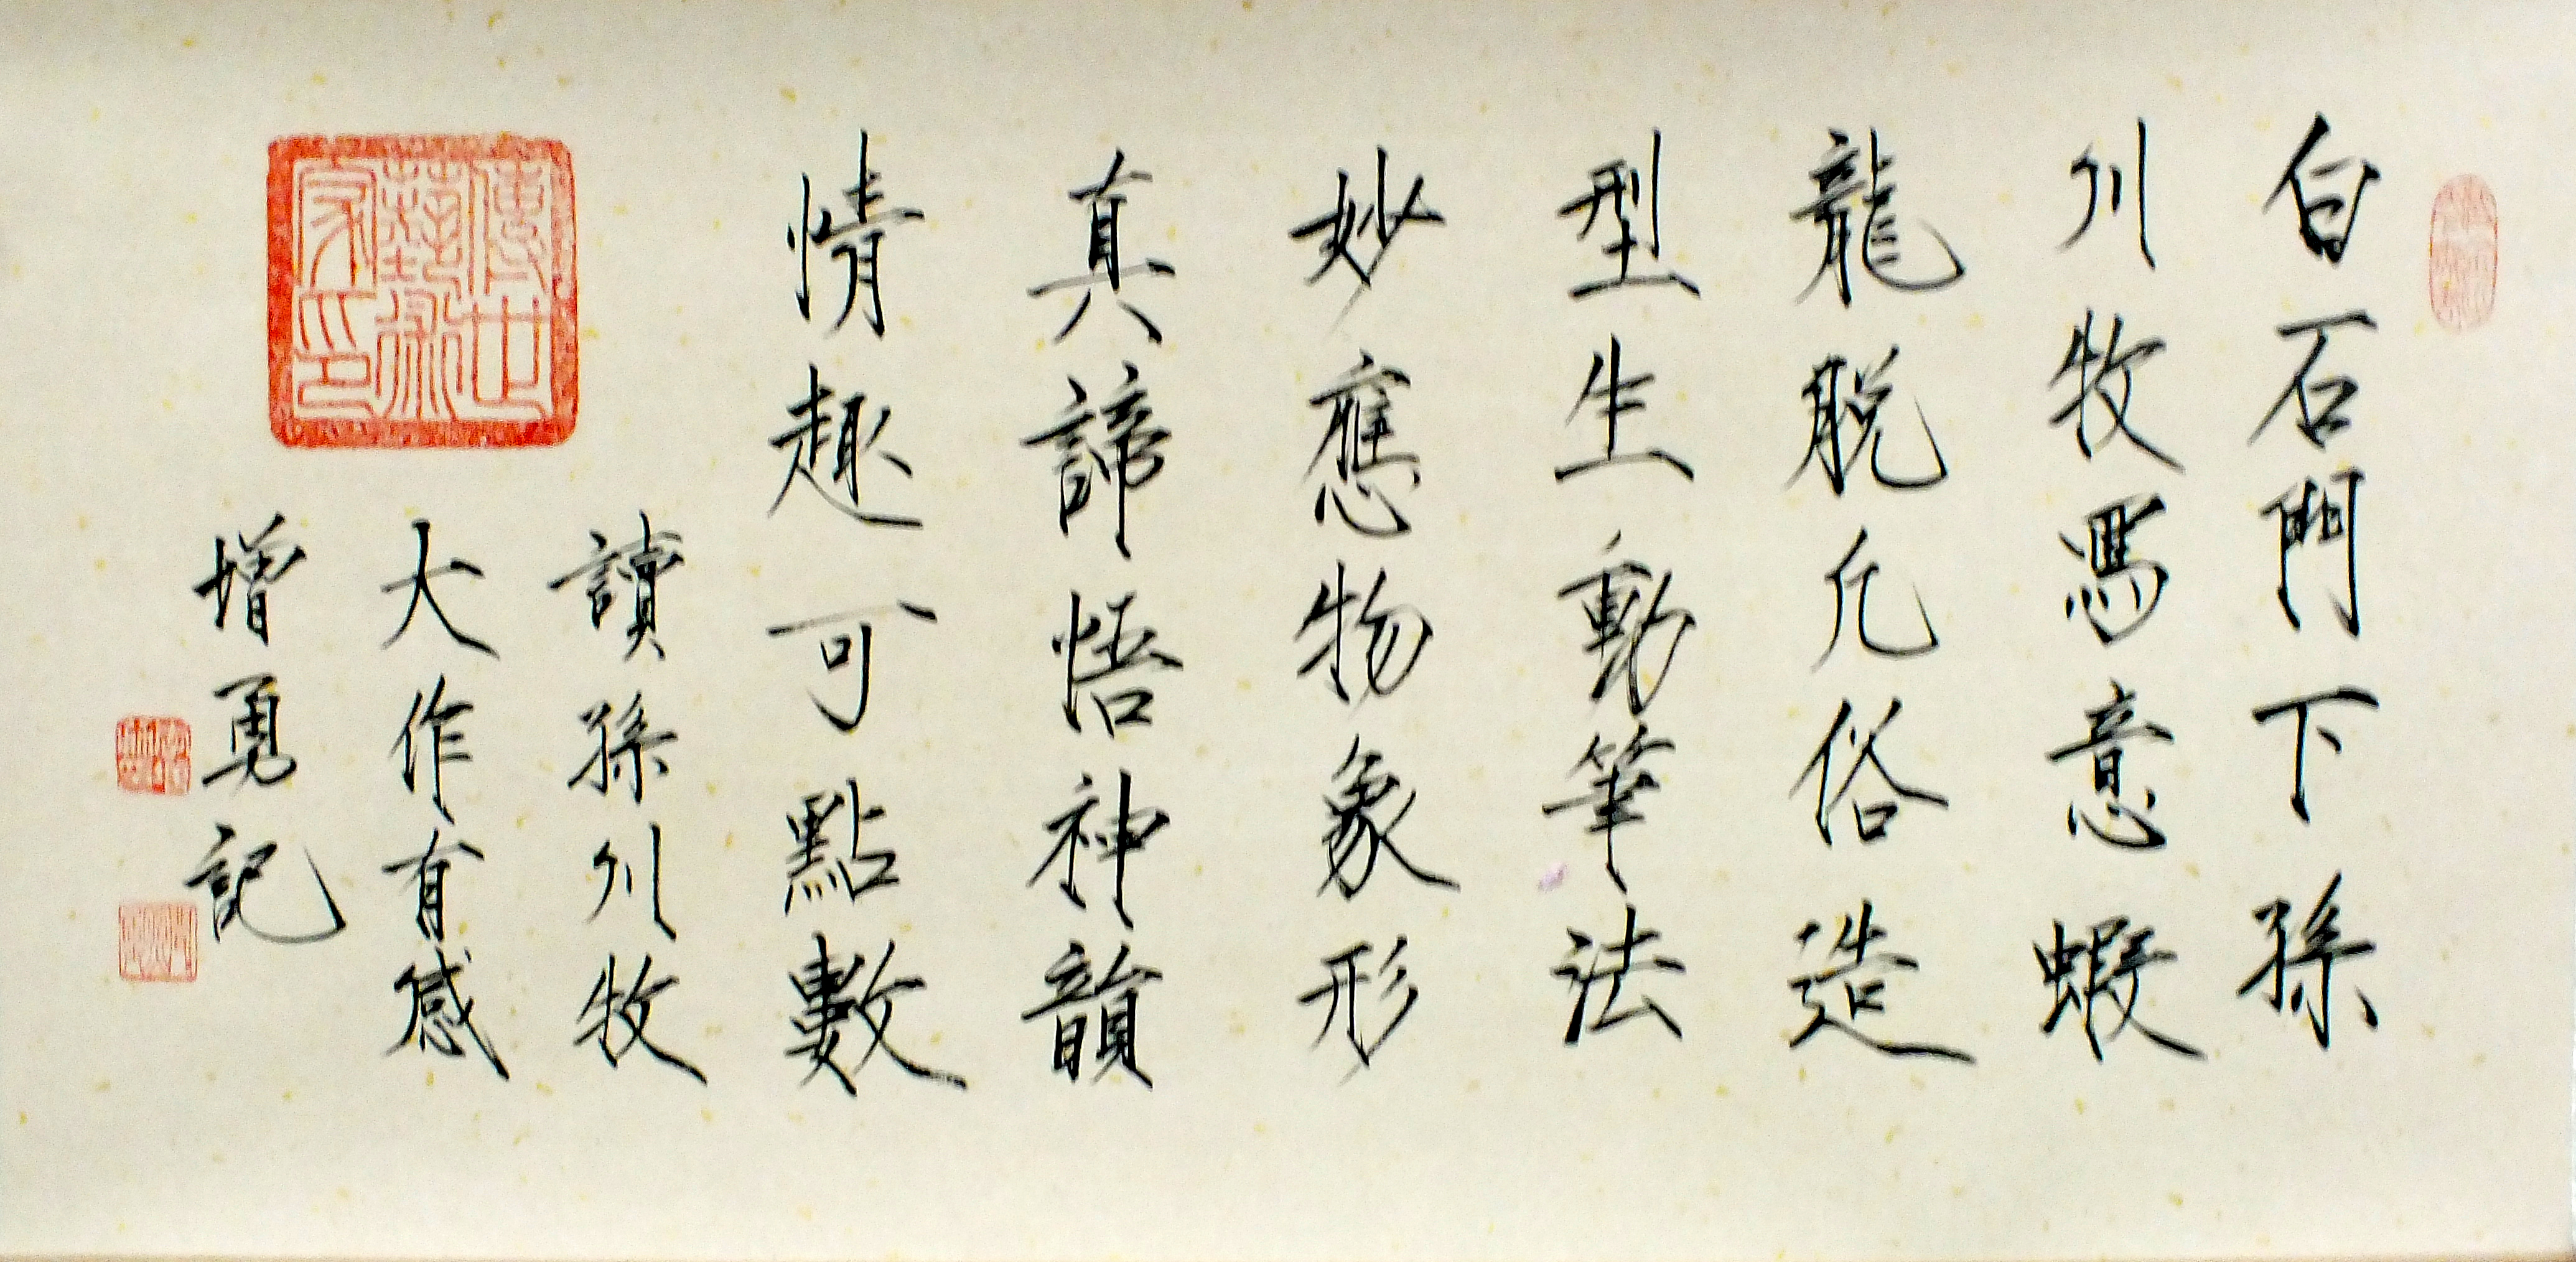 白石門下孫
川牧馮意蝦
龍脱凡俗造
型生動筆法
妙應物象形
真諦悟神韻
情趣可點數
讀孫川牧
大作有感
增勇記
傳世
藝術
家印